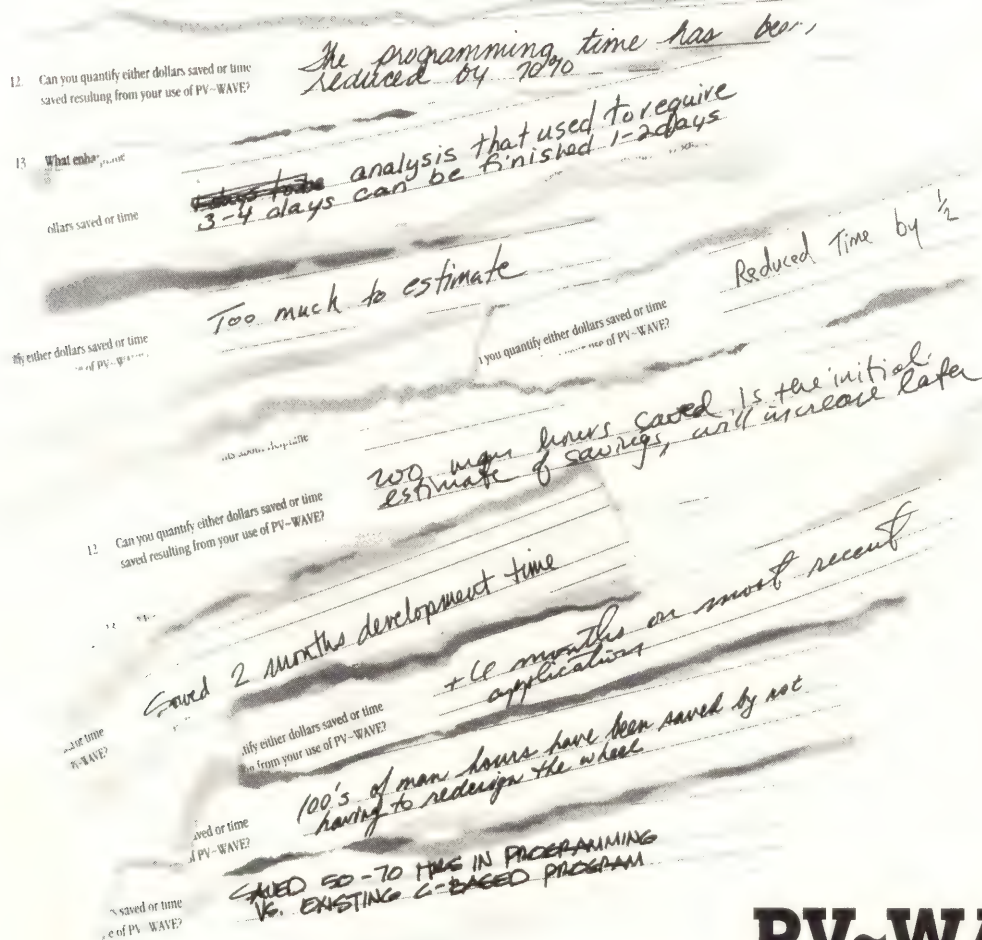 12. Can you quantify either dollars saved or time
saved resulting from your use of PV~WAVE?
The programming time has been
reduced by 70%
13 What enha
ollars saved or time
analysis that used to require
3-4 days can be finished 1-2 days
Too much to estimate
either dollars saved or time
of PV~W
Reduced Time by ½
you quantify either dollars saved or time
use of PV~WAVE?
200 man hours saved is the initial
estimate of savings, will increase later
12 Can you quantify either dollars saved or time
saved resulting from your use of PV~WAVE?
Saved 2 months development time
months on most recent
application
tify either dollars saved or time
from your use of PV~WAVE?
or time
100's of man hours have been saved by not
having to redesign the wheel
ved or time
PV~WAVE?
SAVED 50-70 HRS IN PROGRAMMING
VS. EXISTING C-BASED PROGRAM
saved or time
e of PV~WAVE?
PV~WA